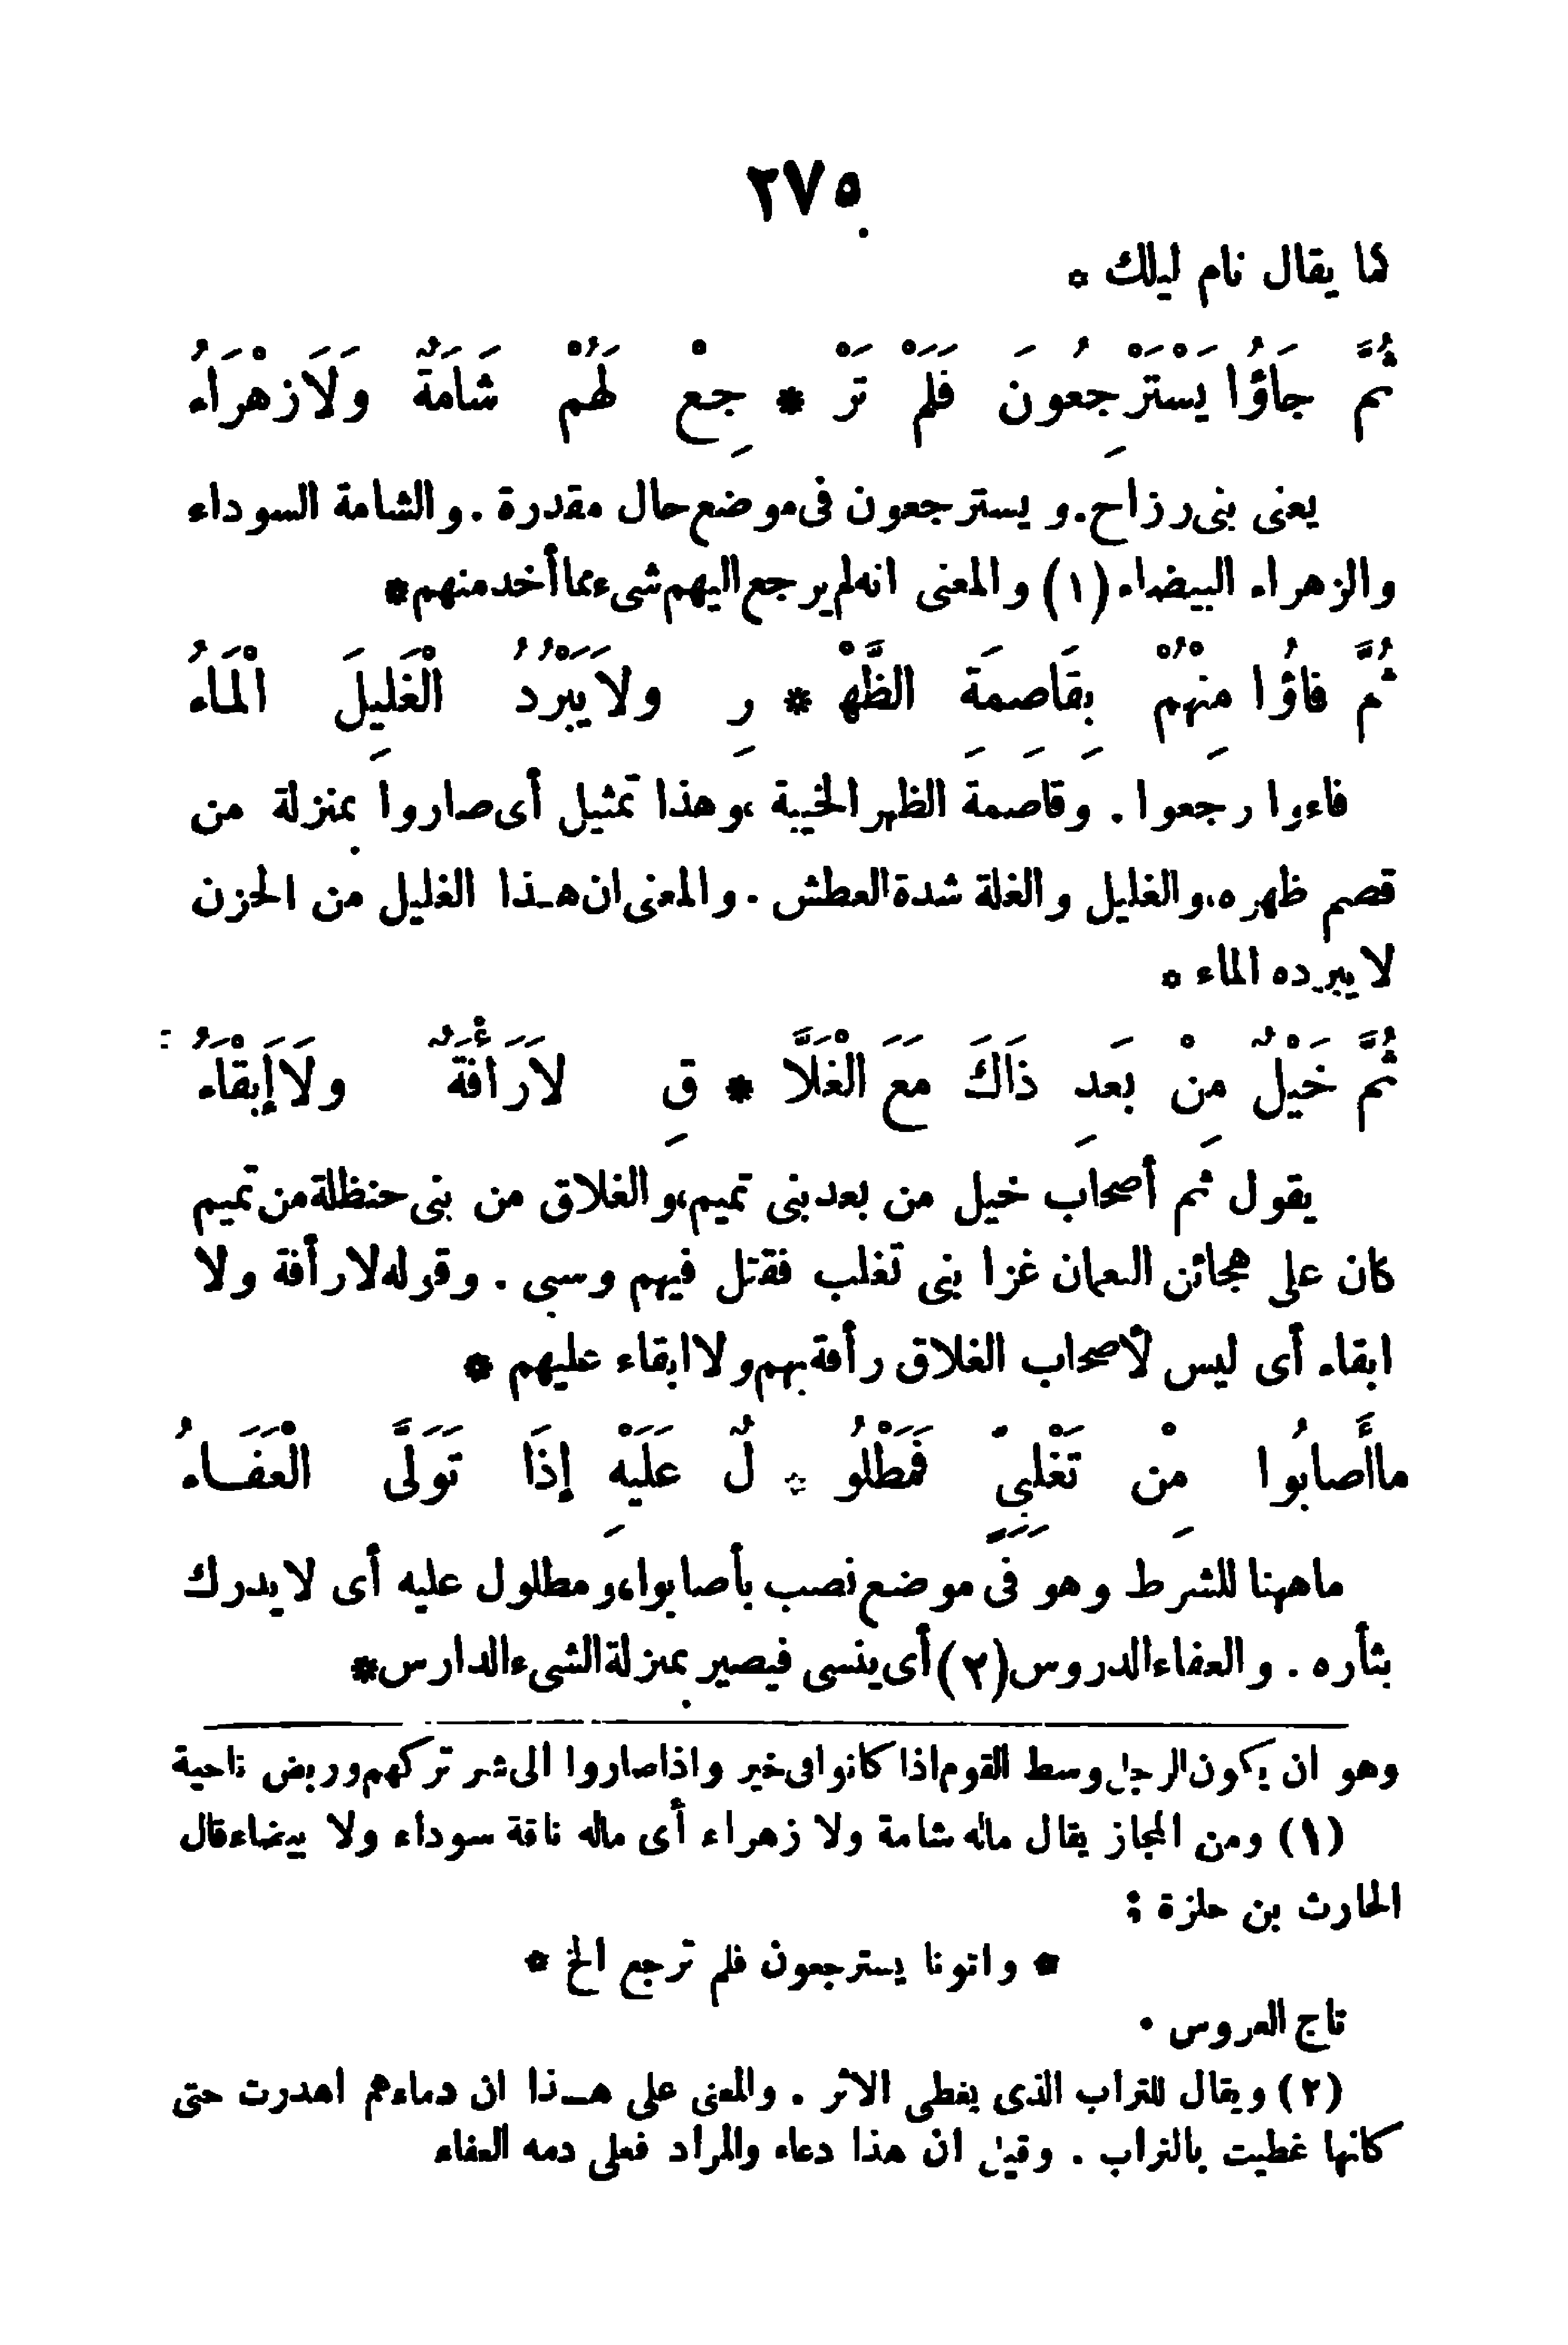 ٢٧٥
كما يقال نام ليلك *
ثُمَّ جَاؤُا يَسْتَرْجِعُونَ فَلَمْ تَرْ * جِعْ لَهُمْ شَامَةٌ وَلَا زَهْرَاءُ
يعنى بنى رزاح. ويسترجعون فى موضع حال مقدرة . والشامة السوداء
والزهراء البيضاء (١) والمعنى انه لم يرجع اليهم شىء مما أخد منهم *
ثُمَّ فاؤُا مِنْهُمْ بِقَاصِمَةِ الظَّهْـ * ـرِ ولا يَبْرُدُ الْغَلِيلَ الْمَاءُ
فاءوا رجعوا . وقاصمة الظهر الخيبة ،وهذا تمثيل أى صاروا بمنزلة من
قصم ظهره،والغليل والغلة شدة العطش . والمعنى ان هـذا الغليل من الحزن
لا يبرده الماء *
ثُمَّ خَيْلٌ مِنْ بَعدِ ذَاكَ مَعَ الْغَلَّا * قِ لَا رَأْفَةٌ ولَا إِبْقَاءُ
يقول ثم أصحاب خيل من بعد بنى تميم،والغلاق من بنى حنظلة من تميم
كان على هجائن النعمان غزا بنى تغلب فقتل فيهم وسبى . وقوله لا رأفة ولا
ابقاء أى ليس لأصحاب الغلاق رأفة بهم ولا ابقاء عليهم *
ما أَصابُوا مِن تَغْلِبِيٍّ فَمَطْلُو * لٌ عَلَيْهِ إِذَا تَوَلَّى الْعَفَــاءُ
ماههنا للشرط وهو فى موضع نصب بأصابوا،ومطلول عليه أى لا يدرك
بثأره . والعفاء الدروس (٢) أى ينسى فيصير بمنزلة الشىء الدارس *
وهو ان يكون الرجل وسط القوم اذا كانوا فى خير واذا صاروا الى شر تركهم وربض ناحية
(١) ومن المجاز يقال ماله شامة ولا زهراء أى ماله ناقة سوداء ولا بيضاء قال
الحارث بن حلزة :
* واتونا يسترجعون فلم ترجع الخ *
تاج العروس .
(٢) ويقال للتراب الذى يغطى الاثر . والمعنى على هــذا ان دماءهم اهدرت حتى
كانها غطيت بالتراب . وقيل ان هذا دعاء والمراد فعلى دمه العفاء